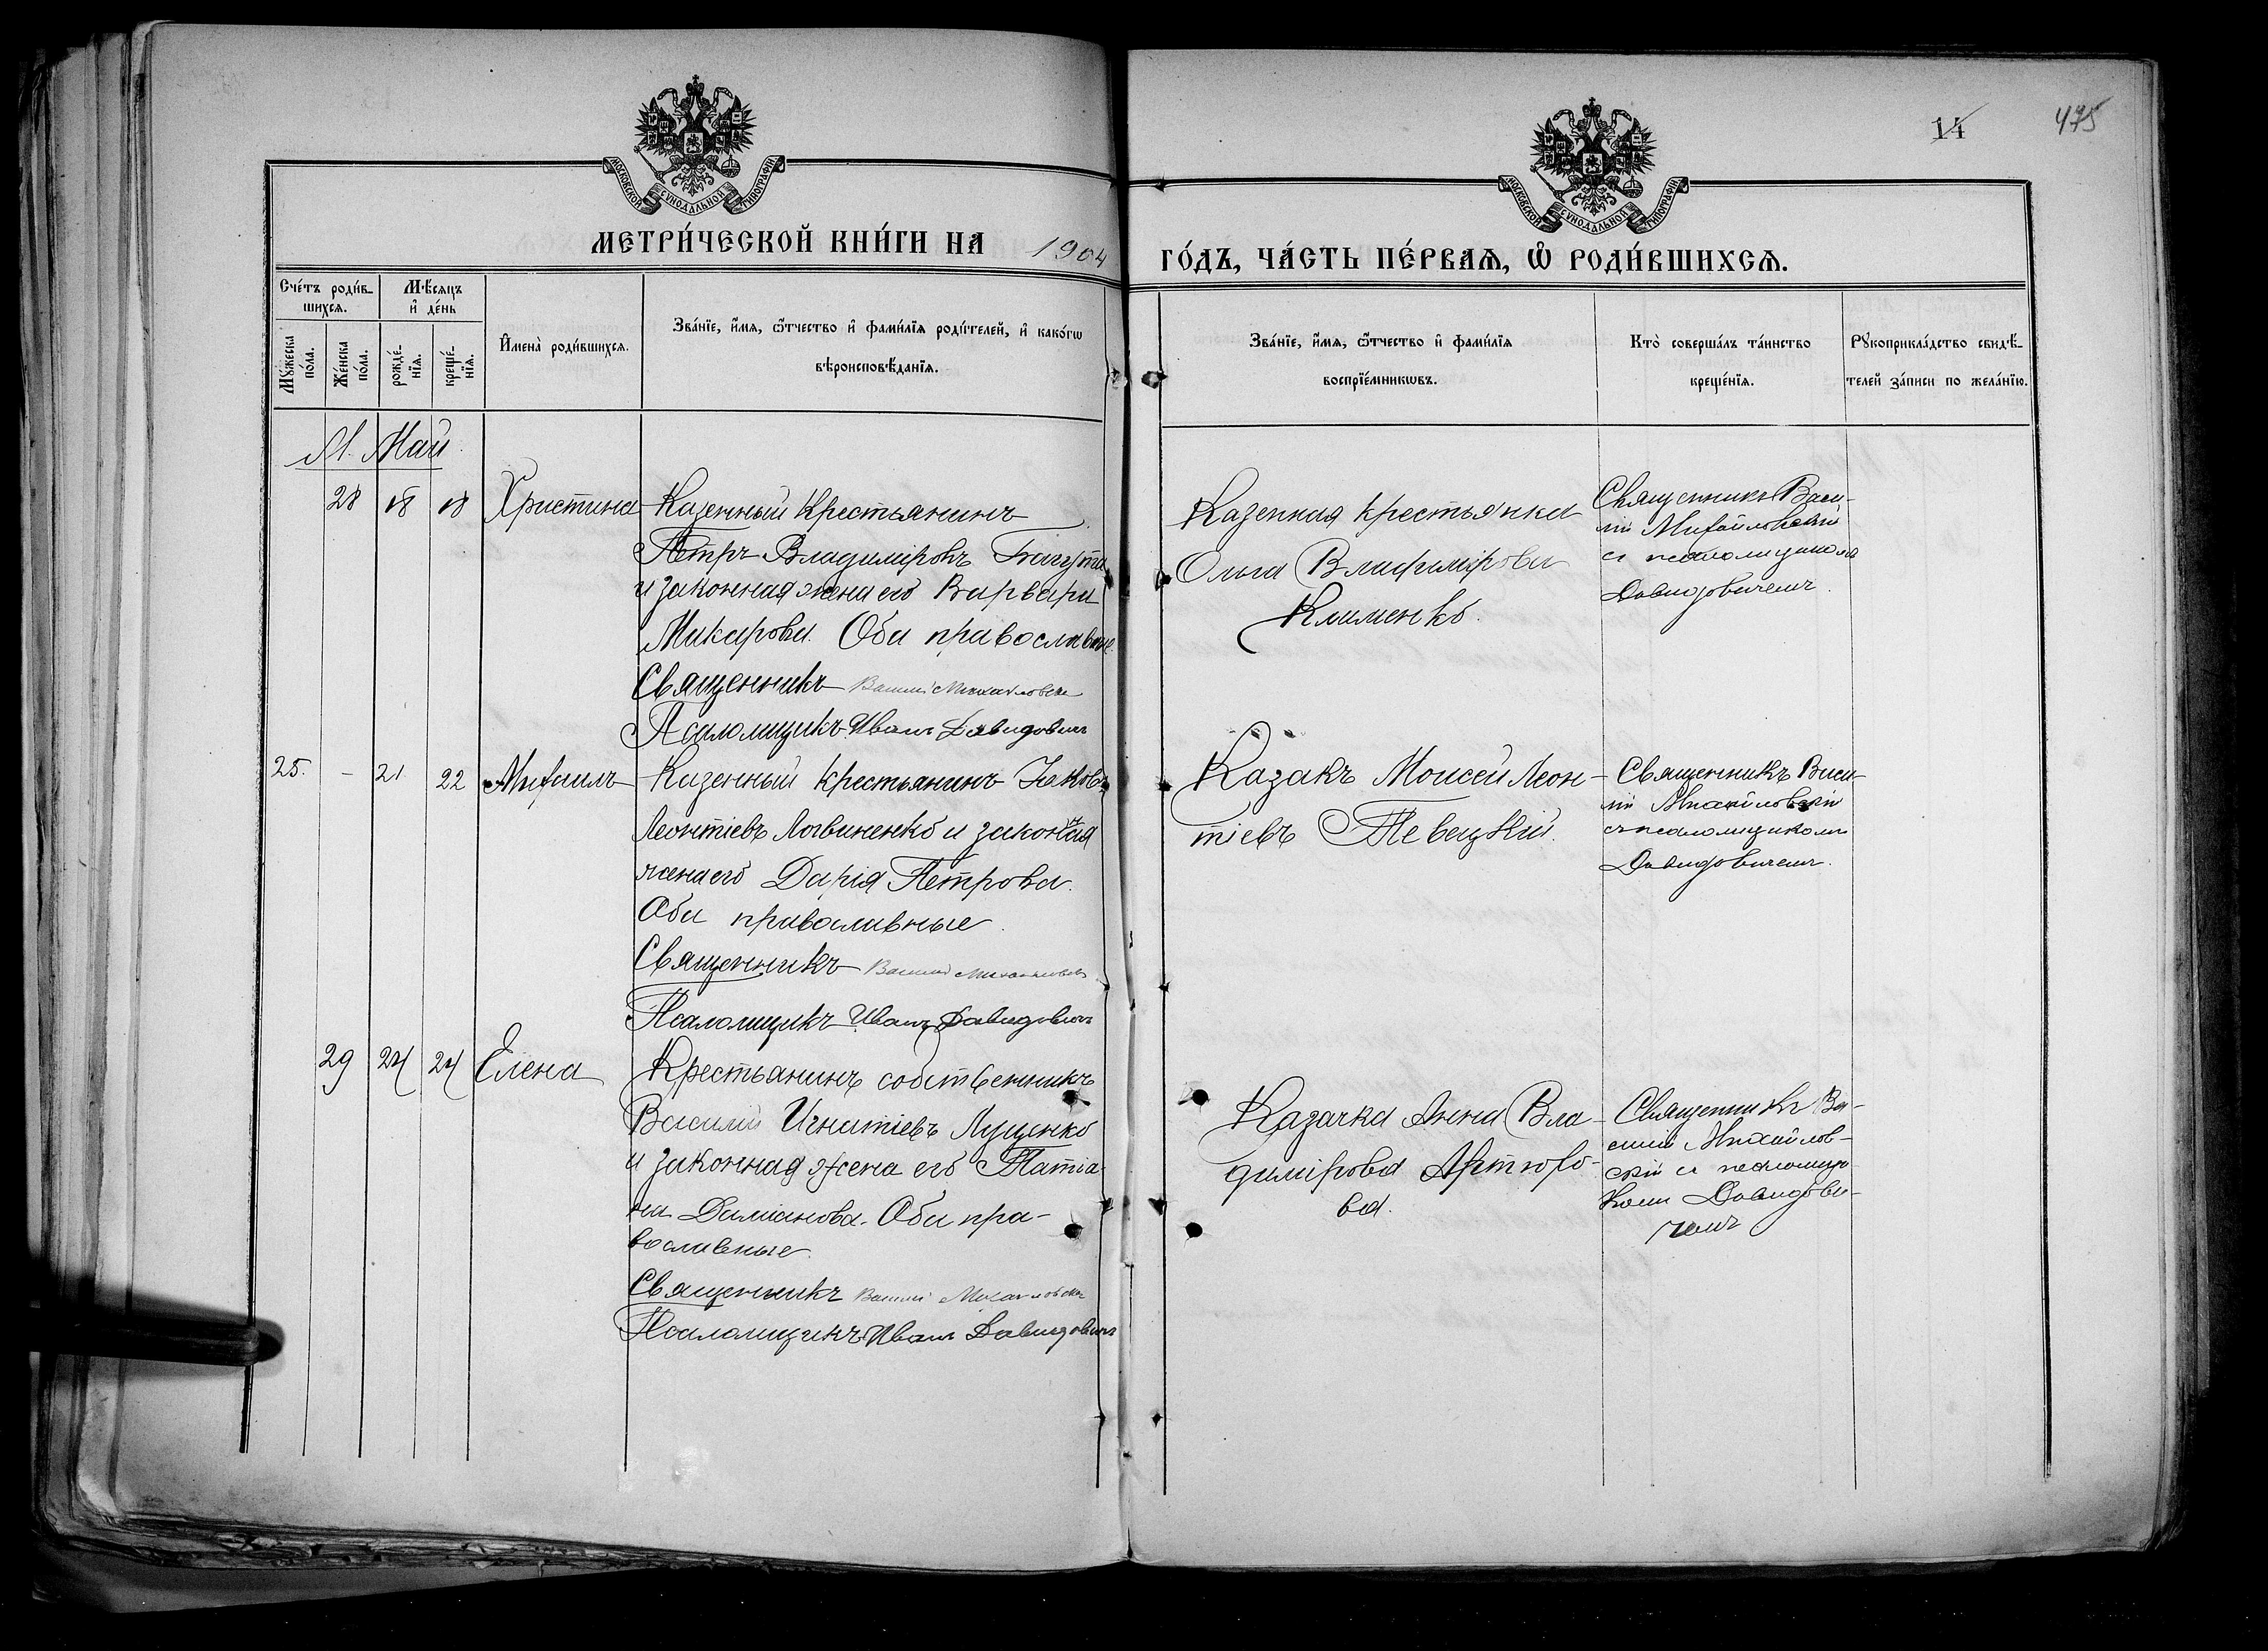 14 475
МОСКОВСКОЙ СУНОДАЛЬНОЙ ТИПОГРАФІИ
МОСКОВСКОЙ СУНОДАЛЬНОЙ ТИПОГРАФІИ
МЕТРИ́ЧЕСКОЙ КНИ́ГИ НА 1904
ГО́ДЪ, ЧА́СТЬ ПЕ́РВАѦ, Ѽ РОДИ́ВШИХСѦ.
Сче́тъ роди́в-
шихсѧ.
Мѣ́сѧцъ
и҆ де́нь
Мꙋ́жеска
по́ла.
Же́нска
по́ла.
рожде́-
нїѧ.
креще́-
нїѧ.
И҆мена̀ роди́вшихсѧ.
Зва́нїе, и҆́мѧ, ѻ҆́тчество и҆ фами́лїѧ роди́телей, и҆ како́гѡ
вѣроисповѣ́данїѧ.
Зва́нїе, и҆́мѧ, ѻ҆́тчество и҆ фами́лїѧ
воспрїе́мникѡвъ.
Кто̀ соверша́лъ та́инство
креще́нїѧ.
Рꙋкоприкла́дство свидѣ́-
телей за́писи по жела́нїю.
М. Май.
28 18 18 Христина
Казенный Крестьянинъ
Петръ Владиміровъ
и законная жена его Варвара
Макарова. Оба православные.
Священникъ Василій Михайловскій
Псаломщикъ Иванъ Давидовичъ
Казенная крестьянка
Ольга Владимірова
Клименко.
Священникъ Васи-
лій Михайловскій
съ псаломщикомъ
Давидовичемъ.
25. - 21 22 Михаилъ
Казенный крестьянинъ Іаковъ
Леонтіевъ Логвиненко и законная
жена его Дарія Петрова.
Оба православные.
Священникъ Василій Михайловскій
Псаломщикъ Иванъ Давидовичъ
Казакъ Моисей Леон-
тіевъ Певацкій.
Священникъ Васи-
лій Михайловскій
съ псаломщикомъ
Давидовичемъ.
29 24 24 Елена
Крестьянинъ собственникъ
Василій Игнатіевъ Луценко
и законная жена его Татіа-
на Даміанова. Оба пра-
вославные.
Священникъ Василій Михайловскій
Псаломщикъ Иванъ Давидовичъ
Казачка Анна Вла-
димірова Артюхо-
ва.
Священникъ Ва-
силій Михайлов-
скій съ псаломщи-
комъ Давидови-
чемъ